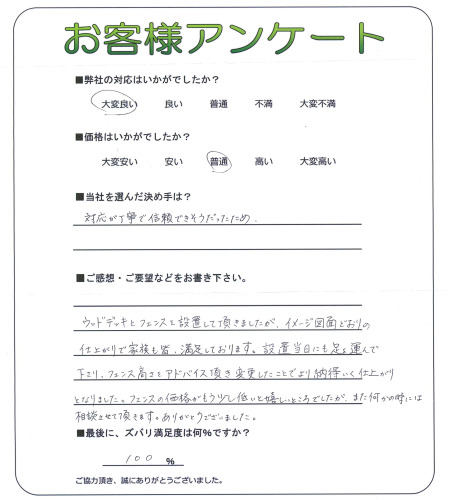 お客様アンケート
■弊社の対応はいかがでしたか?
大変良い 良い 普通 不満 大変不満
■価格はいかがでしたか?
大変安い 安い 普通 高い 大変高い
■当社を選んだ決め手は?
対応が丁寧で信頼できそうだったため.
■ご感想・ご要望などをお書き下さい。
ウッドデッキとフェンスを設置して頂きましたが、イメージ図面どおりの
仕上がりで家族も皆、満足しております。設置当日にも足を運んで
下さり、フェンス高さをアドバイス頂き変更したことでより納得いく仕上がり
となりました。フェンスの価格がもう少し低いと嬉しいところでしたが、また何かの時には
相談させて頂きます。ありがとうございました。
■最後に、ズバリ満足度は何%ですか?
100 %
ご協力頂き、誠にありがとうございました。